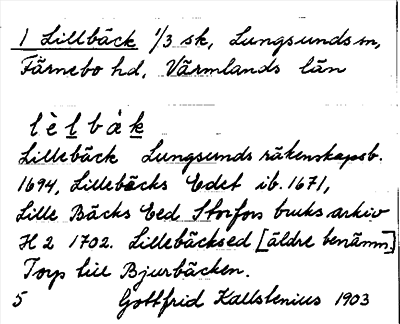 1 Lillbäck 1/3 sk, Lungsunds sn,
Färnebo hd, Värmlands län
lèlbàk
Lillebäck Lungsunds räkenskapsb.
1694, Lillebäcks Edet ib. 1671,
Lille Bäcks Eed Storfors bruks arkiv
H 2 1702. Lillebäcksed [äldre benämn]
Torp till Bjurbäcken.
5 Gottfrid Kallstenius 1903